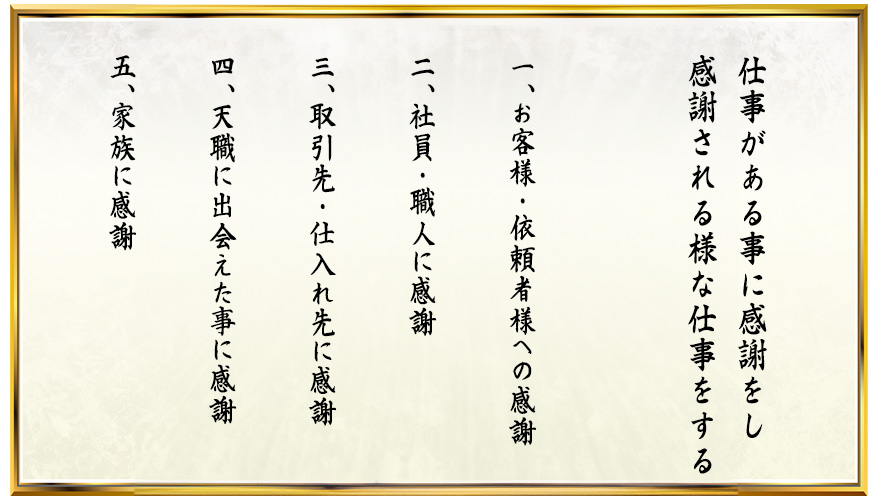 仕事がある事に感謝をし
感謝される様な仕事をする
一、お客様・依頼者様への感謝
二、社員・職人に感謝
三、取引先・仕入れ先に感謝
四、天職に出会えた事に感謝
五、家族に感謝